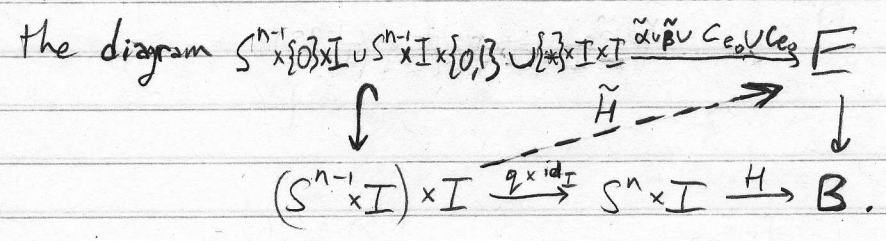 the diagram Sⁿ⁻¹×{0}×I ∪ Sⁿ⁻¹×I×{0,1} ∪ {*}×I×I α̃∪β̃∪C_{e₀}∪C_{e₀} E
H̃
(Sⁿ⁻¹×I)×I q×id_I Sⁿ×I H B.